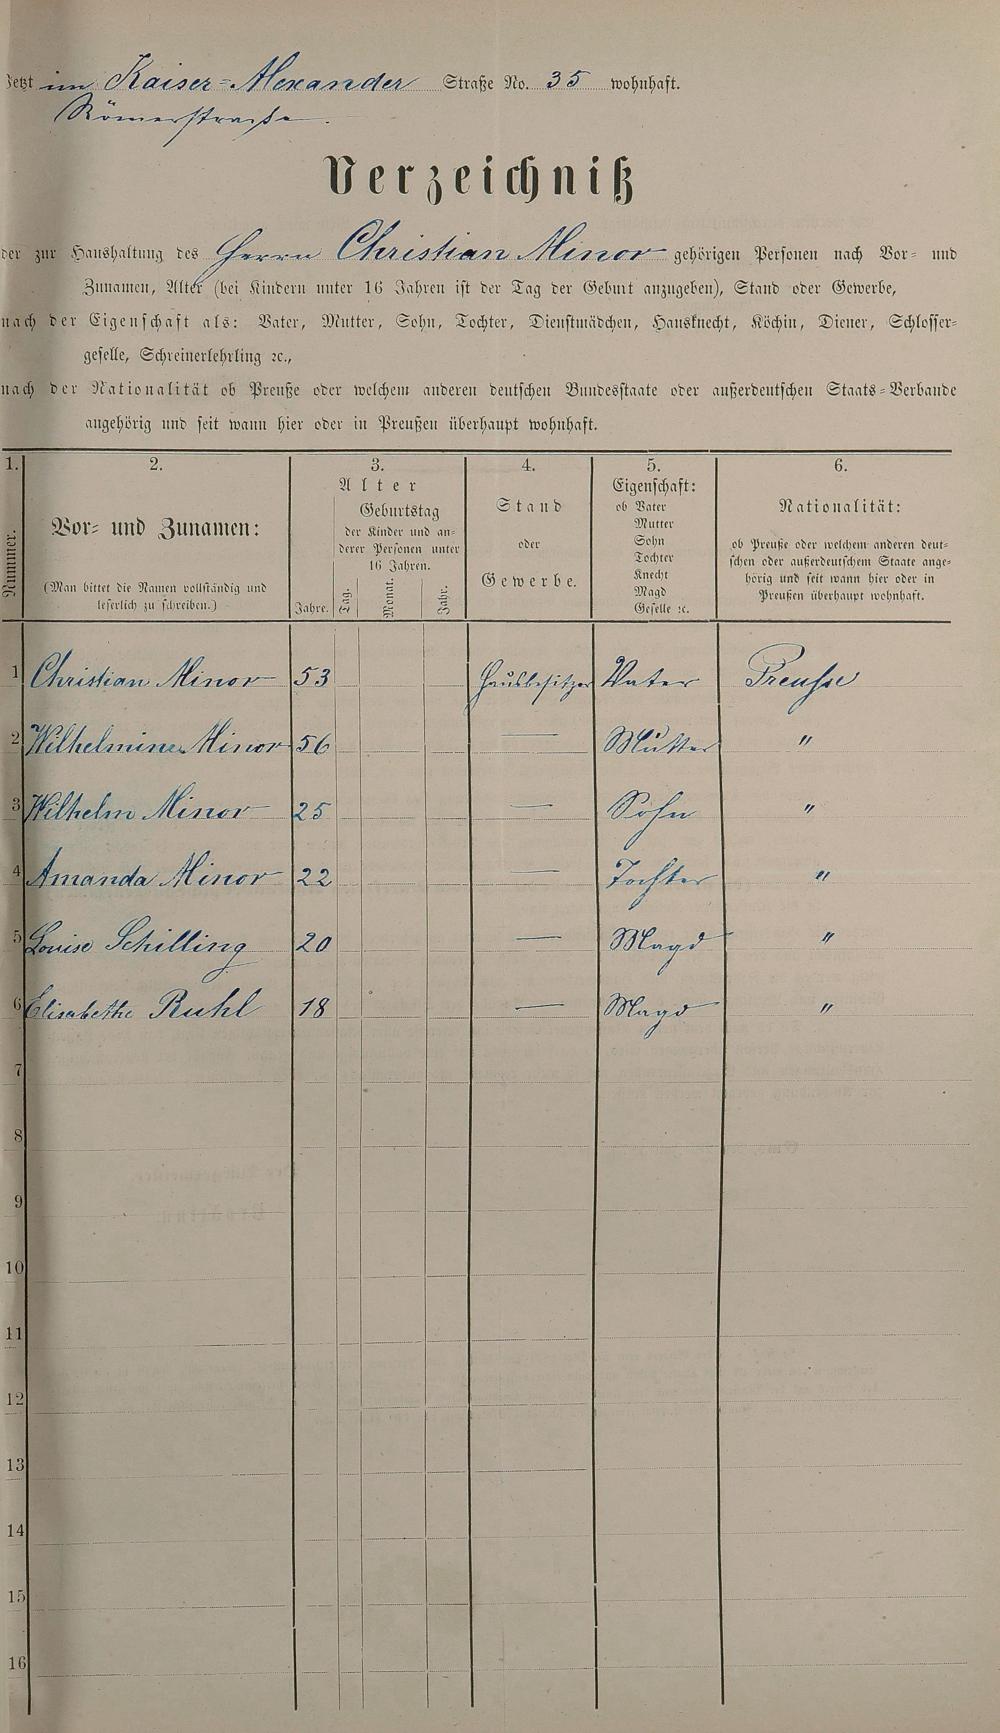 Jetzt im Kaiser=Alexander Straße No. 35 wohnhaft.
Römerstraße.
Verzeichniß
der zur Haushaltung des Herrn Christian Minor gehörigen Personen nach Vor= und
Zunamen, Alter (bei Kindern unter 16 Jahren ist der Tag der Geburt anzugeben), Stand oder Gewerbe,
nach der Eigenschaft als: Vater, Mutter, Sohn, Tochter, Dienstmädchen, Hausknecht, Köchin, Diener, Schlosser=
geselle, Schreinerlehrling ꝛc.,
nach der Nationalität ob Preuße oder welchem anderen deutschen Bundesstaate oder außerdeutschen Staats=Verbande
angehörig und seit wann hier oder in Preußen überhaupt wohnhaft.
1. 2. 3. 4. 5. 6.
Nummer.
Vor= und Zunamen:
(Man bittet die Namen vollständig und
leserlich zu schreiben.)
Alter
Jahre.
Geburtstag
der Kinder und an=
derer Personen unter
16 Jahren.
Tag. Monat. Jahr.
Stand
oder
Gewerbe.
Eigenschaft:
ob Vater
Mutter
Sohn
Tochter
Knecht
Magd
Geselle ꝛc.
Nationalität:
ob Preuße oder welchem anderen deut=
schen oder außerdeutschem Staate ange=
hörig und seit wann hier oder in
Preußen überhaupt wohnhaft.
1 Christian Minor 53 Hausbesitzer Vater Preuße
2 Wilhelmine Minor 56 — Mutter "
3 Wilhelm Minor 25 — Sohn "
4 Amanda Minor 22 — Tochter "
5 Louise Schilling 20 — Magd "
6 Elisabethe Ruhl 18 — Magd "
7
8
9
10
11
12
13
14
15
16